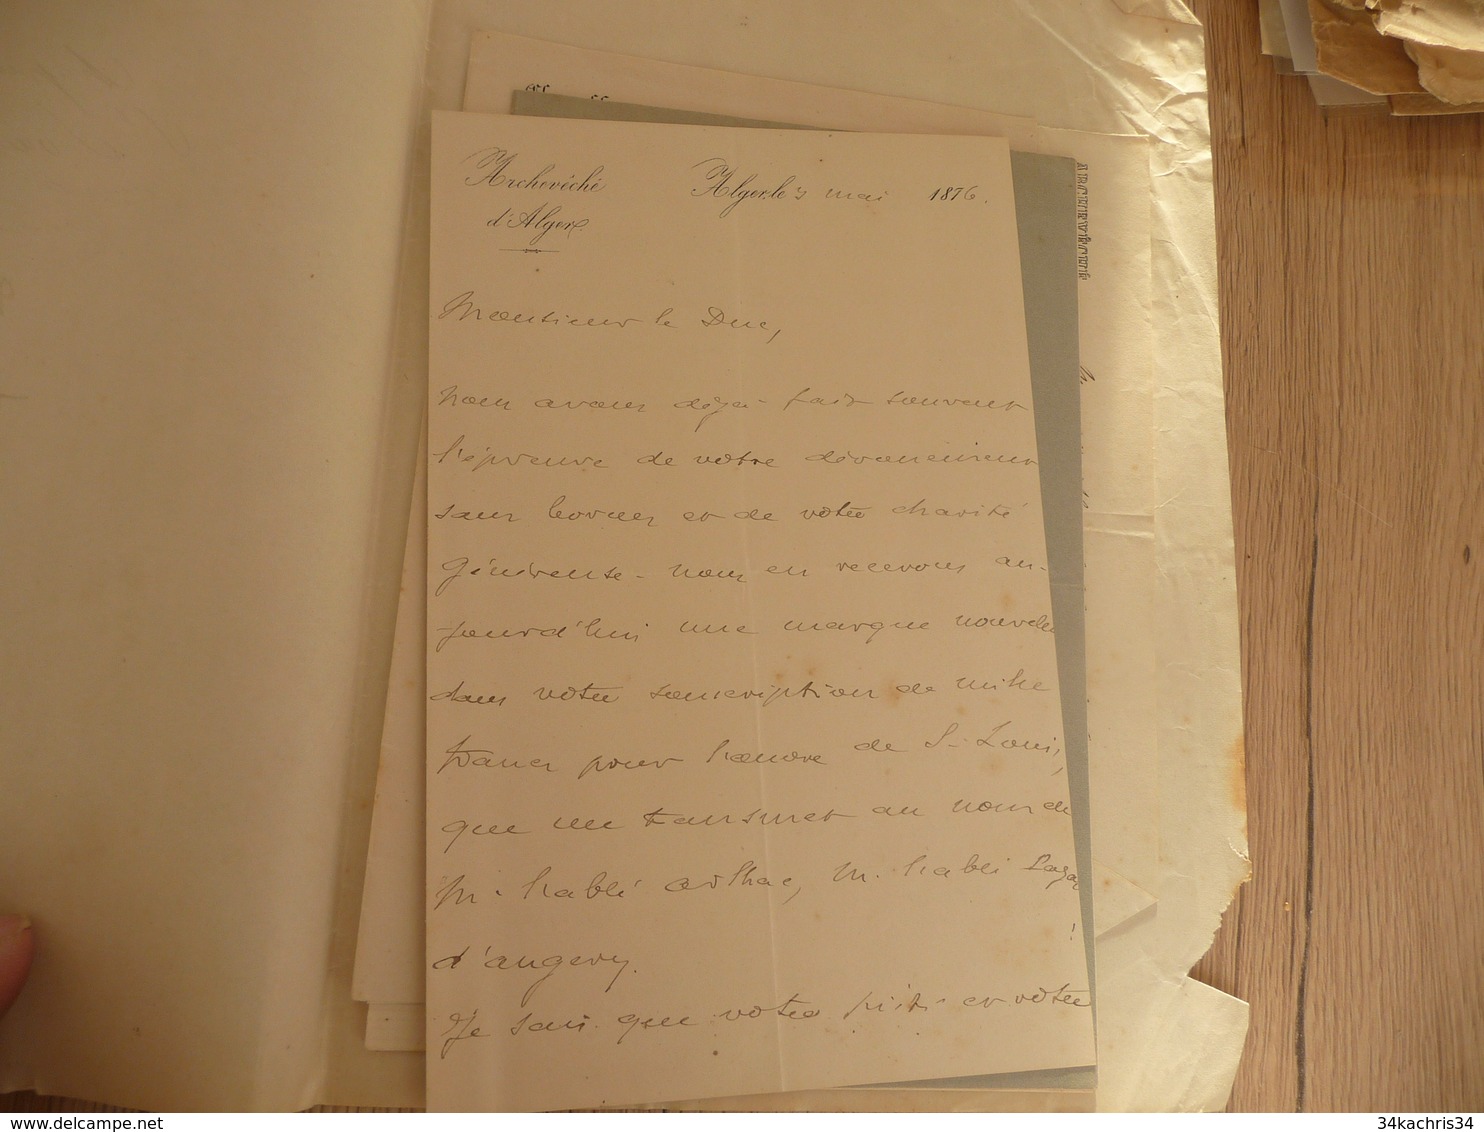 Archevêché
d'Alger
Alger, le 3 mai 1876.
Monsieur le Duc,
Nous avons déja fait souvent
l'épreuve de votre dévouement
sans bornes et de votre charité
généreuse - nous en recevons au-
jourd'hui une marque nouvelle
dans votre souscription de mille
francs pour l'œuvre de St Louis,
que me transmet au nom de
M. l'abbé M. l'abbé
d'angery.
Je sais que votre piété et votre
ARCHEVÊCHÉ
www.delcampe.net
34kachris34